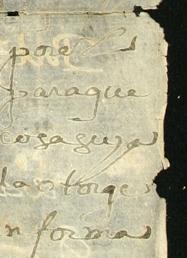 por el
paraque
cosa guya
la otorge
n forma